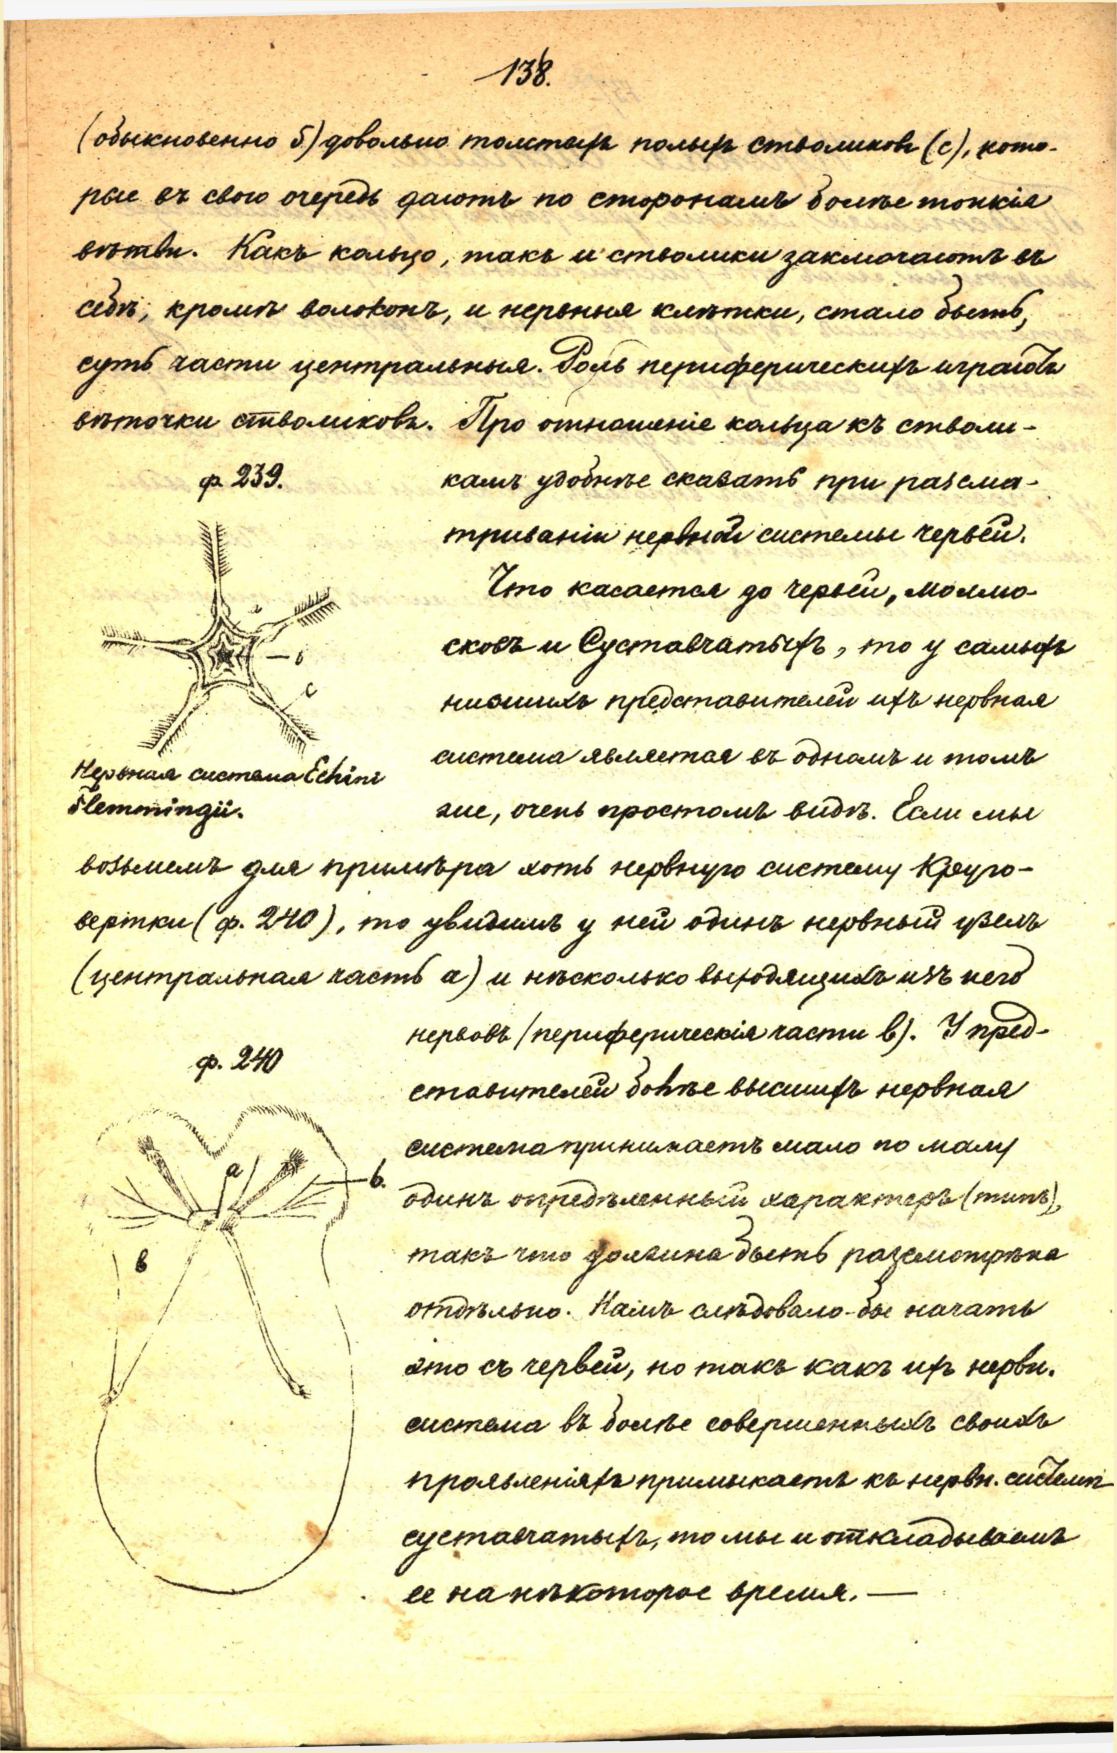 138.
(обыкновенно 5) довольно толстыхъ полыхъ стволиковъ (с), кото-
рые въ свою очередь даютъ по сторонамъ болѣе тонкія
вѣтви. Какъ кольцо, такъ и стволики заключаютъ въ
себѣ, кромѣ волоконъ, и нервныя клѣтки, стало быть,
суть части центральныя. Роль периферическихъ играютъ
вѣточки стволиковъ. Про отношеніе кольца къ стволи-
ф. 239.
камъ удобнѣе сказать при разсма-
триваніи нервной системы червей.
Что касается до червей, моллю-
сковъ и Суставчатыхъ, то у самыхъ
низшихъ представителей ихъ нервная
система является въ одномъ и томъ
же, очень простомъ видѣ. Если мы
в
с
Нервная система Echini
Flemmingii.
возьмемъ для примѣра хоть нервную систему Круго-
вертки (ф. 240), то увидимъ у ней одинъ нервный узелъ
(центральная часть а) и нѣсколько выходящихъ изъ него
нервовъ (периферическія части в). У пред-
ф. 240
ставителей болѣе высшихъ нервная
система принимаетъ мало по малу
одинъ опредѣленный характеръ (типъ),
такъ что должна быть разсмотрѣна
отдѣльно. Намъ слѣдовало-бы начать
это съ червей, но такъ какъ ихъ нервн.
система въ болѣе совершенныхъ своихъ
проявленіяхъ примыкаетъ къ нервн. системѣ
суставчатыхъ, то мы и откладываемъ
ее на нѣкоторое время. —
а
в.
в